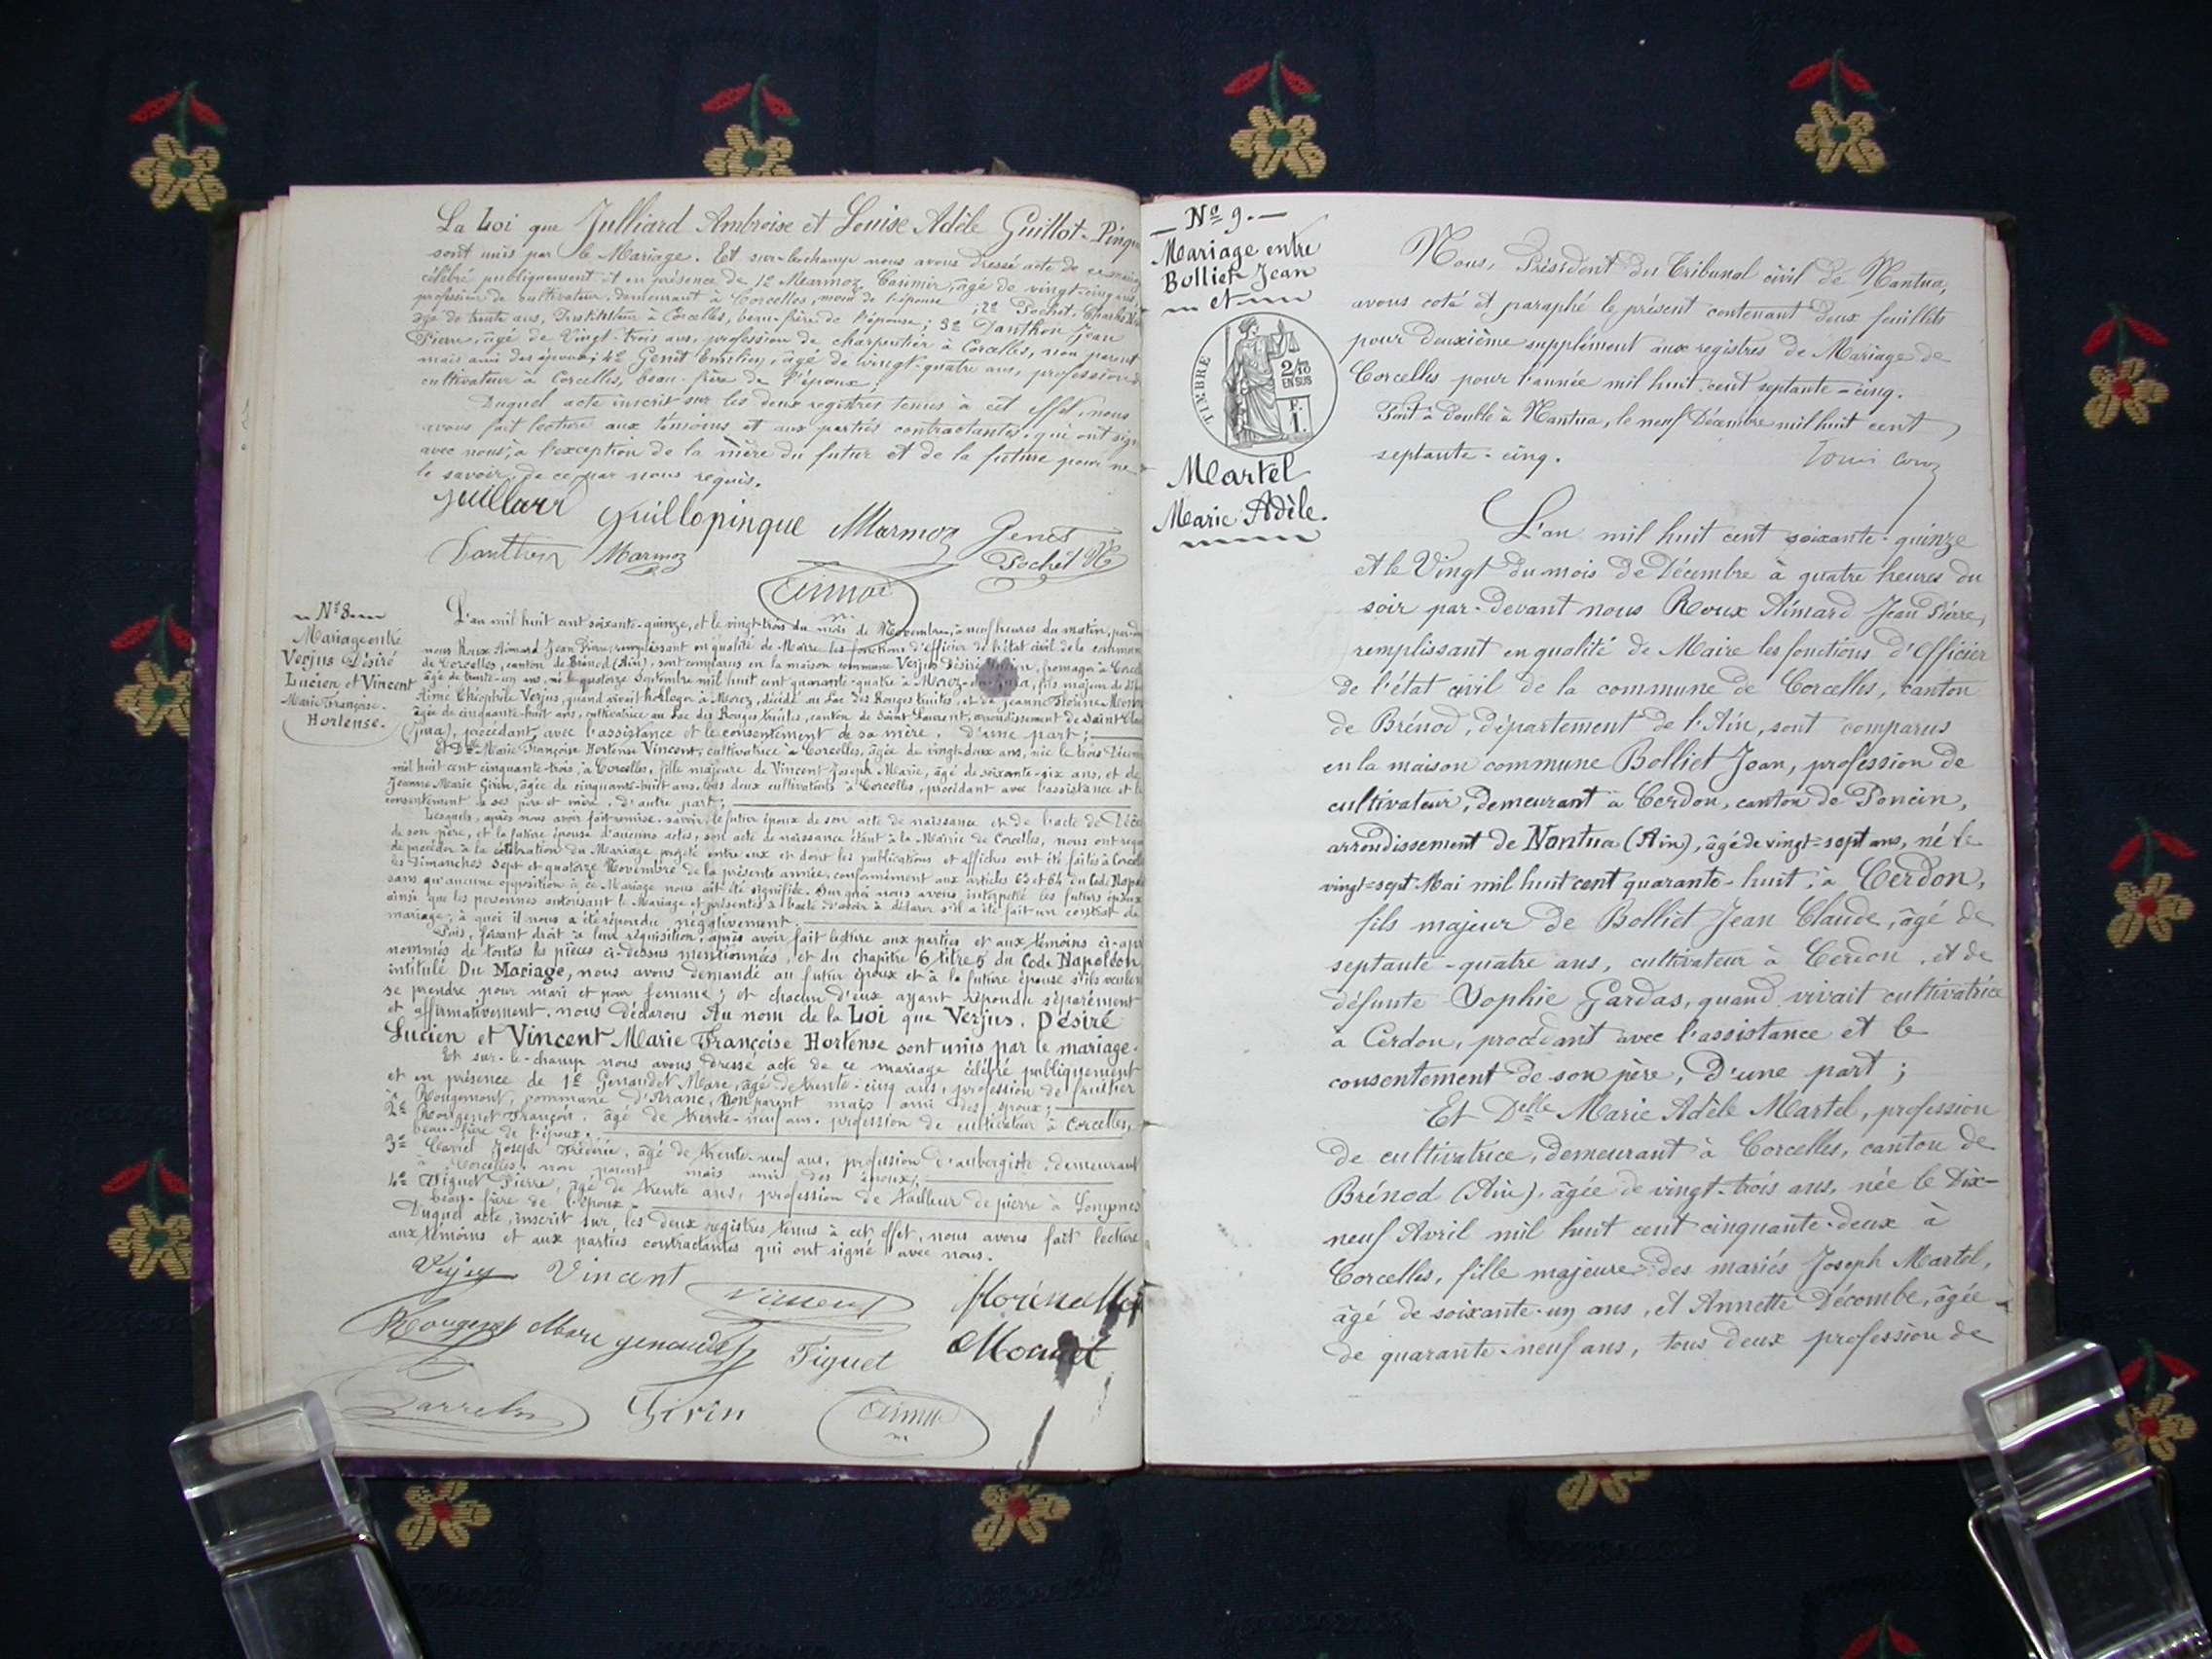 La Loi que Julliard Ambroise et Louise Adèle Guillot-Pinque
sont unis par le Mariage. Et sur-le-champ nous avons dressé acte de ce mariage
célébré publiquement et en présence de 1º Marmoz Casimir, âgé de vingt-cinq ans,
profession de cultivateur, demeurant à Corcelles, de l'épouse ; 2º Pochet, Charles
âgé de trente ans, Instituteur à Corcelles, beau-frère de l'épouse ; 3º Danthon Jean
Pierre, âgé de Vingt-trois ans, profession de charpentier à Corcelles, non parent
mais ami des époux ; 4º Genet Emélien, âgé de vingt-quatre ans, profession
cultivateur à Corcelles, beau-frère de l'époux ;
Duquel acte inscrit sur les deux registres tenus à cet effet, nous
avons fait lecture aux témoins et aux parties contractantes, qui ont sign
avec nous, à l'exception de la mère du futur et de la future pour ne
le savoir, de ce par nous requis.
Juillard Guillopinque Marmoz Genet
Danthon Marmoz Pochet
Aimard
Nº 8
Mariage entre
Verjus Désiré
Lucien et Vincent
Marie Françoise
Hortense.
L'an mil huit cent soixante-quinze, et le vingt-trois du mois de Novembre, à neuf heures du matin, par-de
nous Roux Aimard Jean Pierre, remplissant en qualité de Maire les fonctions d'officier de l'état civil de la commune
de Corcelles, canton de Brénod (Ain), sont comparus en la maison commune Verjus Désiré Lucien, fromager à Corcell
âgé de trente-un ans, né le quatorze Septembre mil huit cent quarante-quatre à Morez-du-Jura, fils majeur de
Aimé Théophile Verjus, quand vivait horloger à Morez, décédé au Lac des Rouges Truites, et de Jeanne Florine
âgée de cinquante-huit ans, cultivatrice au Lac des Rouges Truites, canton de Saint Laurent, arrondissement de Saint Clau
(Jura), procédant avec l'assistance et le consentement de sa mère. D'une part ;
Et Dlle Marie Françoise Hortense Vincent, cultivatrice à Corcelles, âgée de vingt-deux ans, née le trois Décem
mil huit cent cinquante-trois, à Corcelles, fille majeure de Vincent Joseph Marie, âgé de soixante-dix ans, et de
Jeanne Marie Girin, âgée de cinquante-huit ans, tous deux cultivateurs à Corcelles, procédant avec l'assistance et le
consentement de ses père et mère, d'autre part ;
Lesquels, après nous avoir fait remise, savoir : le futur époux de son acte de naissance et de l'acte de Décè
de son père, et la future épouse d'aucuns actes, son acte de naissance étant à la Mairie de Corcelles, nous ont requ
de procéder à la célébration du Mariage projeté entre eux et dont les publications et affiches ont été faites à Corcelle
les dimanches sept et quatorze Novembre de la présente année, conformément aux articles 63 et 64 du Code Napol
sans qu'aucune opposition à ce Mariage nous ait été signifiée. Sur quoi nous avons interpellé les futurs époux
ainsi que les personnes autorisant le Mariage et présentes à l'acte d'avoir à déclarer s'il a été fait un contrat de
mariage ; à quoi il nous a été répondu négativement.
Puis, faisant droit à leur réquisition, après avoir fait lecture aux parties et aux témoins ci-apr
nommés de toutes les pièces ci-dessus mentionnées, et du chapitre 6 titre 5 du Code Napoléon
intitulé Du Mariage, nous avons demandé au futur époux et à la future épouse s'ils veulen
se prendre pour mari et pour femme ; et chacun d'eux ayant répondu séparément
et affirmativement, nous déclarons Au nom de la Loi que Verjus, Désiré
Lucien et Vincent Marie Françoise Hortense sont unis par le mariage.
Et sur-le-champ nous avons dressé acte de ce mariage célébré publiquement
et en présence de 1º Genaudet Marc, âgé de trente-cinq ans, profession de fruitier
à Rougemont, commune d'Aranc, non parent mais ami des époux ;
2º Rougenet François, âgé de trente-neuf ans, profession de cultivateur à Corcelles,
beau-frère de l'époux.
3º Joseph Frédéric, âgé de trente-neuf ans, profession d'aubergiste, demeurant
à Corcelles, non parent mais ami des époux ;
4º Piguet Pierre, âgé de trente ans, profession de tailleur de pierre à
beau-frère de l'époux.
Duquel acte, inscrit sur les deux registres tenus à cet effet, nous avons fait lecture
aux témoins et aux parties contractantes qui ont signé avec nous.
Verjus Vincent Vincent Florine
Rougenet Marc genaudet Piguet
Girin Aimard
Nº 9.
Mariage entre
Bolliet Jean
et
TIMBRE
2/10
EN SUS
F.
1.
Martel
Marie Adèle.
Nous, Président du Tribunal civil de Nantua,
avons coté et paraphé le présent contenant deux feuillets
pour deuxième supplément aux registres de Mariage de
Corcelles pour l'année mil huit cent septante-cinq.
Fait à double à Nantua, le neuf Décembre mil huit cent
septante-cinq.
L'an mil huit cent soixante-quinze
et le Vingt du mois de Décembre à quatre heures du
soir par-devant nous Roux Aimard Jean Pierre,
remplissant en qualité de Maire les fonctions d'Officier
de l'état civil de la commune de Corcelles, canton
de Brénod, département de l'Ain, sont comparus
en la maison commune Bolliet Jean, profession de
cultivateur, demeurant à Cerdon, canton de Poncin,
arrondissement de Nantua (Ain), âgé de vingt-sept ans, né le
vingt-sept Mai mil huit cent quarante-huit, à Cerdon,
fils majeur de Bolliet Jean Claude, âgé de
septante-quatre ans, cultivateur à Cerdon, et de
défunte Sophie Gardas, quand vivait cultivatrice
à Cerdon, procédant avec l'assistance et le
consentement de son père, D'une part ;
Et Delle Marie Adèle Martel, profession
de cultivatrice, demeurant à Corcelles, canton de
Brénod (Ain), âgée de vingt-trois ans, née le Dix-
neuf Avril mil huit cent cinquante-deux à
Corcelles, fille majeure des mariés Joseph Martel,
âgé de soixante-un ans, et Annette Décombe, âgée
de quarante-neuf ans, tous deux profession de